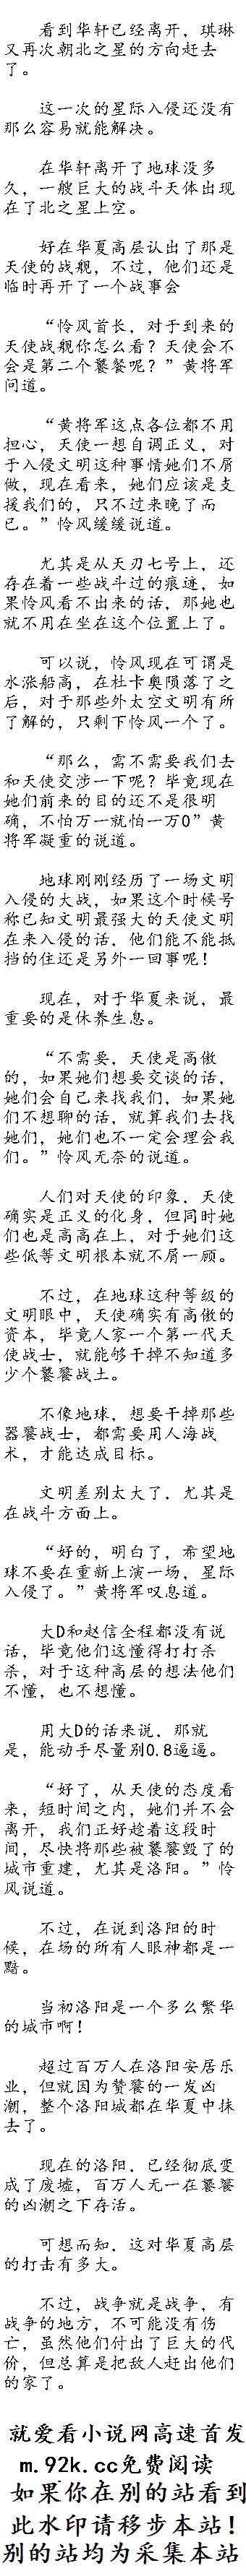 看到华轩已经离开，琪琳
又再次朝北之星的方向赶去
了。
这一次的星际入侵还没有
那么容易就能解决。
在华轩离开了地球没多
久，一艘巨大的战斗天体出现
在了北之星上空。
好在华夏高层认出了那是
天使的战舰，不过，他们还是
临时再开了一个战事会
“怜风首长，对于到来的
天使战舰你怎么看？天使会不
会是第二个饕餮呢？”黄将军
问道。
“黄将军这点各位都不用
担心，天使一想自调正义，对
于入侵文明这种事情她们不屑
做，现在看来，她们应该是支
援我们的，只不过来晚了而
已。”怜风缓缓说道。
尤其是从天刃七号上，还
存在着一些战斗过的痕迹，如
果怜风看不出来的话，那她也
就不用在坐在这个位置上了。
可以说，怜风现在可谓是
水涨船高，在杜卡奥陨落了之
后，对于那些外太空文明有所
了解的，只剩下怜风一个了。
“那么，需不需要我们去
和天使交涉一下呢？毕竟现在
她们前来的目的还不是很明
确，不怕万一就怕一万0”黄
将军凝重的说道。
地球刚刚经历了一场文明
入侵的大战，如果这个时候号
称已知文明最强大的天使文明
在来入侵的话，他们能不能抵
挡的住还是另外一回事呢！
现在，对于华夏来说，最
重要的是休养生息。
“不需要，天使是高傲
的，如果她们想要交谈的话，
她们会自己来找我们，如果她
们不想聊的话，就算我们去找
她们，她们也不一定会理会我
们。”怜风无奈的说道。
人们对天使的印象，天使
确实是正义的化身，但同时她
们也是高高在上，对于她们这
些低等文明根本就不屑一顾。
不过，在地球这种等级的
文明眼中，天使确实有高傲的
资本，毕竟人家一个第一代天
使战士，就能够干掉不知道多
少个饕餮战土。
不像地球，想要干掉那些
器餮战士，都需要用人海战
术，才能达成目标。
文明差别太大了，尤其是
在战斗方面上。
“好的，明白了，希望地
球不要在重新上演一场，星际
入侵了。”黄将军叹息道。
大D和赵信全程都没有说
话，毕竟他们这懂得打打杀
杀，对于这种高层的想法他们
不懂，也不想懂。
用大D的话来说，那就
是，能动手尽量别0.8逼逼。
“好了，从天使的态度看
来，短时间之内，她们并不会
离开，我们正好趁着这段时
间，尽快将那些被饕餮毁了的
城市重建，尤其是洛阳。”怜
风说道。
不过，在说到洛阳的时
候，在场的所有人眼神都是一
黯。
当初洛阳是一个多么繁华
的城市啊！
超过百万人在洛阳安居乐
业，但就因为赞餮的一发凶
潮，整个洛阳城都在华夏中抹
去了。
现在的洛阳，已经彻底变
成了废墟，百万人无一在饕餮
的凶潮之下存活。
可想而知，这对华夏高层
的打击有多大。
不过，战争就是战争，有
战争的地方，不可能没有伤
亡，虽然他们付出了巨大的代
价，但总算是把敌人赶出他们
的家了。
就爱看小说网高速首发
m.92k.cc免费阅读
如果你在别的站看到
此水印请移步本站！
别的站均为采集本站